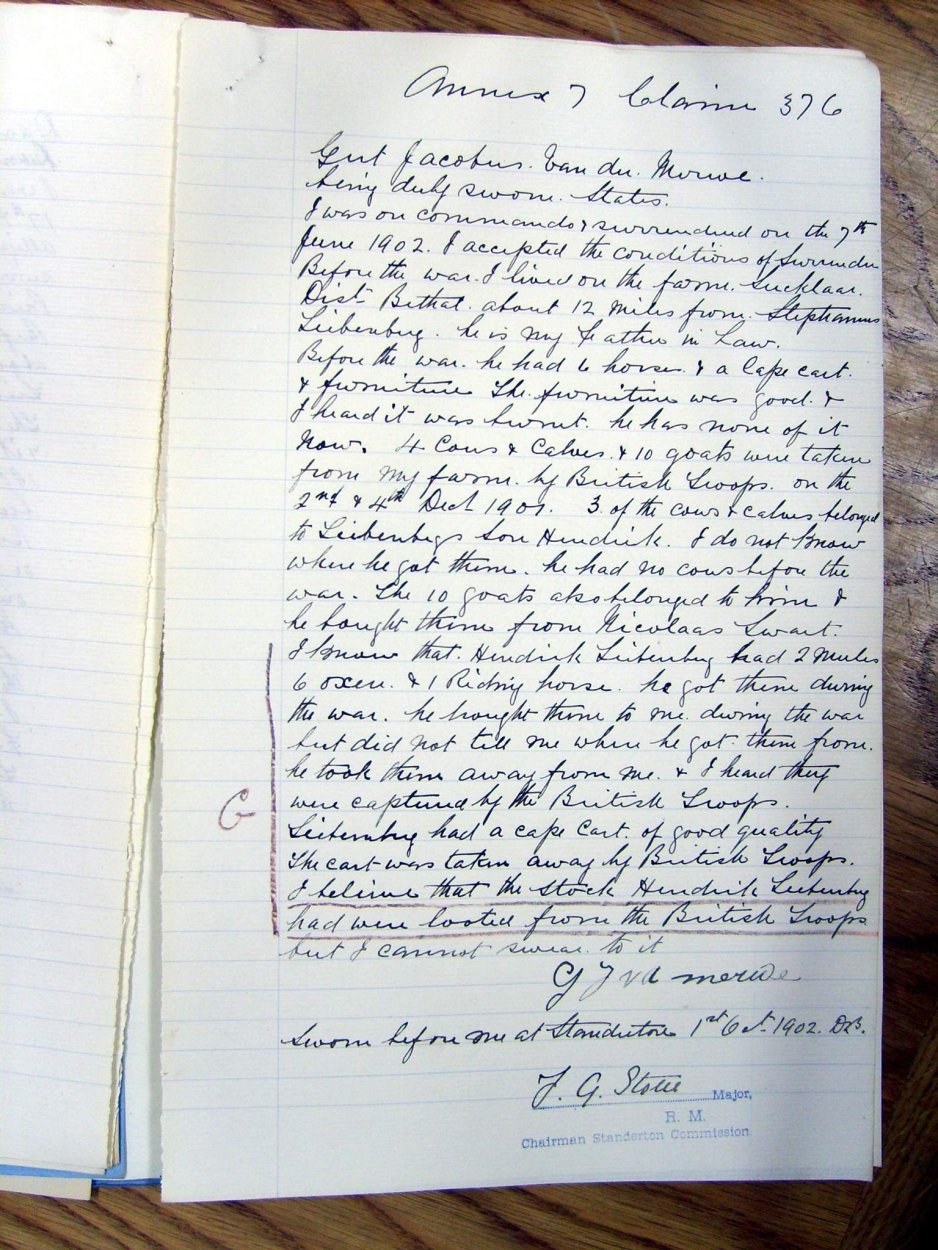 Annex 7 Claim 376
Gert Jacobus. Van der. Merwe.
being duly sworn. States.
I was on commando & surrendered on the 7th
June 1902. I accepted the conditions of Surrender
Before the war. I lived on the farm.
Dist Bethal. about 12 miles from. Stephanus
Leibenberg. he is my Father in Law.
Before the war. he had 6 horses. & a Cape cart.
& furniture The furniture was good. &
I heard it was burnt. he has none of it
Now. 4 Cows & Calves. & 10 goats were taken
from my farm. by British Troops. on the
2nd & 4th Dect 1901. 3 of the cows & calves belonged
to Leibenbergs Son Hendrik. I do not know
where he got them. he had no cows before the
war. The 10 goats also belonged to him &
he bought them from Nicolaas Swart.
I know that. Hendrik Leibenberg had 2 mules
6 oxen. & 1 Riding horse. he got them during
the war. he brought them to me. during the war
but did not tell me where he got them from.
he took them away from me. & I heard they
were captured by the British Troops.
G
Leibenberg had a cape cart. of good quality
The cart was taken away by British Troops.
I believe that the stock Hendrik Leibenberg
had were looted from the British Troops
but I cannot swear to it
G J vd merwe
Sworn before me at Standerton 1st Oct. 1902.
Major,
R. M.
Chairman Standerton Commission